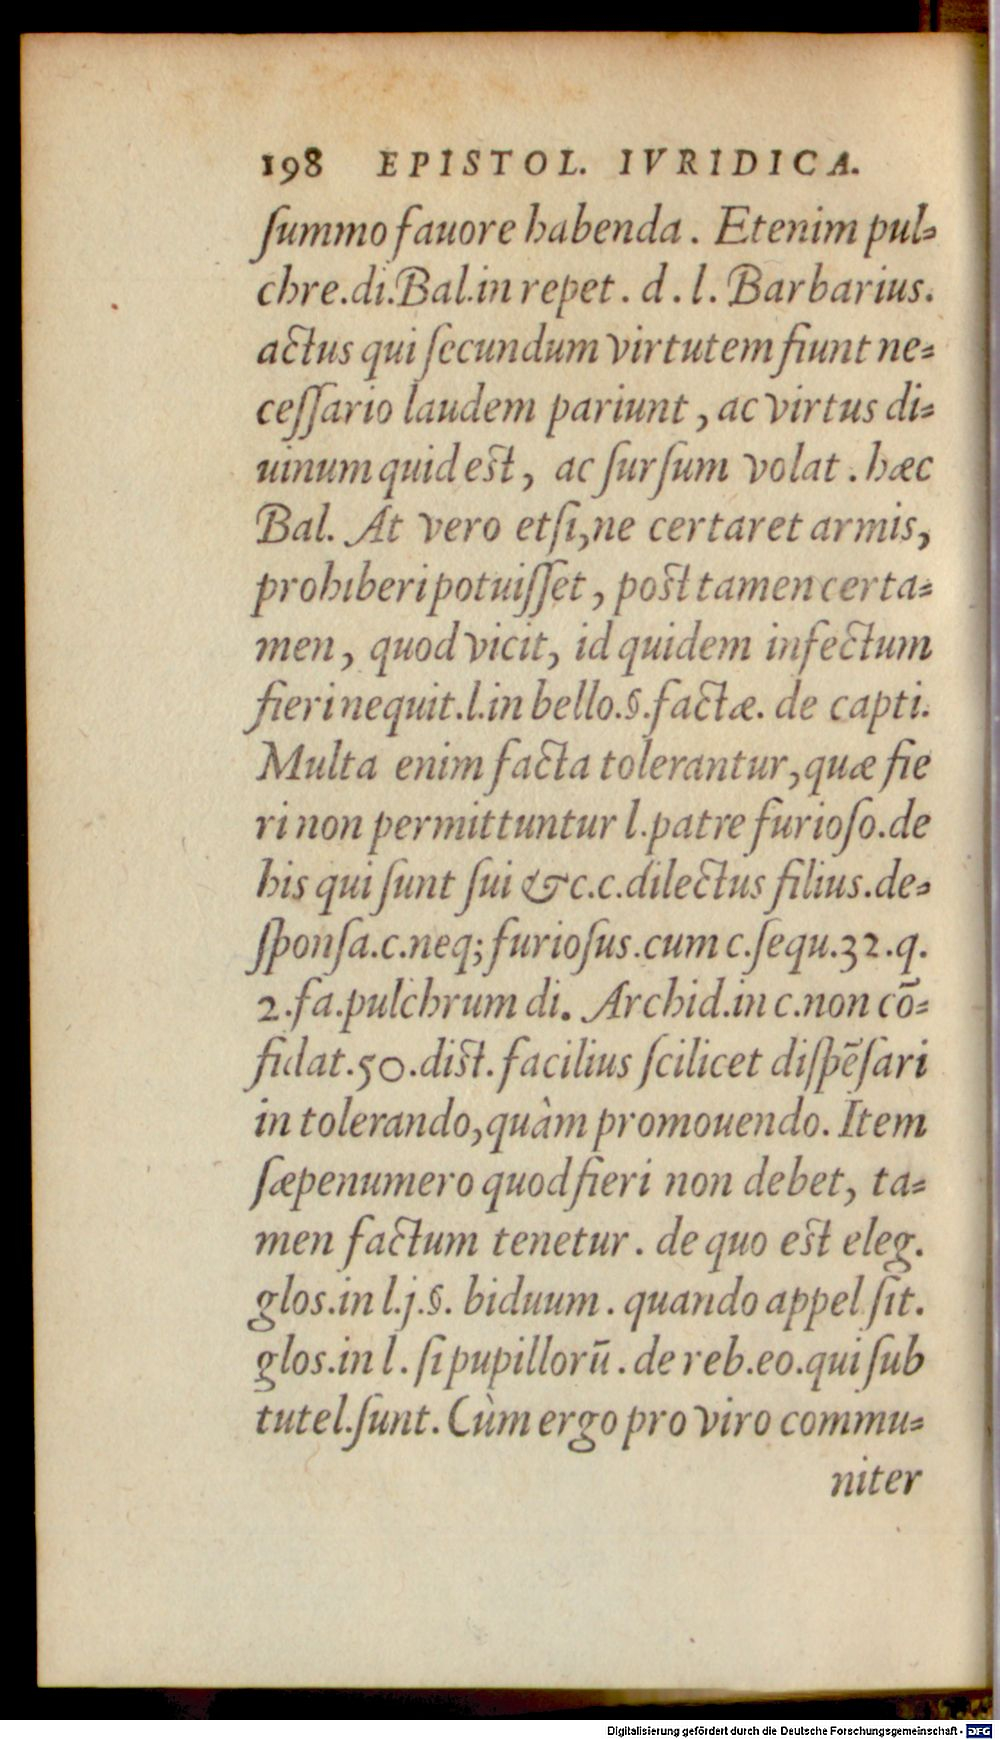 198 EPISTOL. IVRIDICA.
ſummo fauore habenda. Etenim pul-
chre.di.Bal.in repet. d. l. Barbarius.
actus qui ſecundum virtutem fiunt ne-
ceſſario laudem pariunt, ac virtus di-
uinum quid est, ac ſurſum volat. hæc
Bal. At vero etſi, ne certaret armis,
prohiberi potuiſſet, post tamen certa-
men, quod vicit, id quidem infectum
fieri nequit.l.in bello.§.factæ. de capti.
Multa enim facta tolerantur, quæ fie
ri non permittuntur l.patre furioſo.de
his qui ſunt ſui &c.c.dilectus filius.de-
ſponſa.c.neq; furioſus.cum c.ſequ.32.q.
2.fa.pulchrum di. Archid.in c.non cō-
fidat.50.dist.facilius ſcilicet diſpēſari
in tolerando, quàm promouendo. Item
ſæpenumero quod fieri non debet, ta-
men factum tenetur. de quo est eleg.
glos.in l.j.§. biduum. quando appel ſit.
glos.in l. ſi pupillorū. de reb.eo.qui ſub
tutel.ſunt. Cùm ergo pro viro commu-
niter
Digitalisierung gefördert durch die Deutsche Forschungsgemeinschaft - DFG